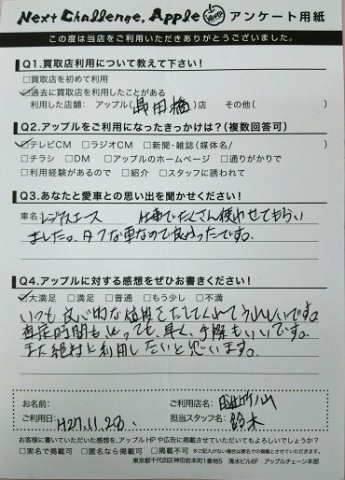 Next Challenge. Apple アンケート用紙
この度は当店をご利用いただきありがとうございました。
Q1.買取店利用について教えて下さい!
□買取店を初めて利用
☑過去に買取店を利用したことがある
利用した店舗: アップル( 島田橋 )店 その他( )
Q2.アップルをご利用になったきっかけは?(複数回答可)
☑テレビCM □ラジオCM □新聞・雑誌(媒体名/ )
□チラシ □DM □アップルのホームページ □通りがかりで
□利用経験があるので □紹介 □スタッフに誘われて
Q3.あなたと愛車との思い出を聞かせください!
車名: レジアスエース 仕事でたくさん使わせてもらい
ました。タフな車なので良かったです。
Q4.アップルに対する感想をぜひお書きください!
☑大満足 □満足 □普通 □もう少し □不満
いつも良心的な値段をだしてくれてうれしいです。
査定時間もとっても、早く、手際もいいです。
また絶対に利用したいと思います。
お名前:
ご利用店名:
ご利用日: H27.11.28.
担当スタッフ名: 鈴木
お客様に書いていただいた感想を、アップルHPや広告に掲載させていただいてもよろしいでしょうか?
□実名で掲載可 □匿名なら掲載可 □掲載不可 ※ご記入がない場合は匿名での掲載とさせていただきます。
東京都千代田区神田岩本町1番地5 清水ビル6F アップルチェーン本部